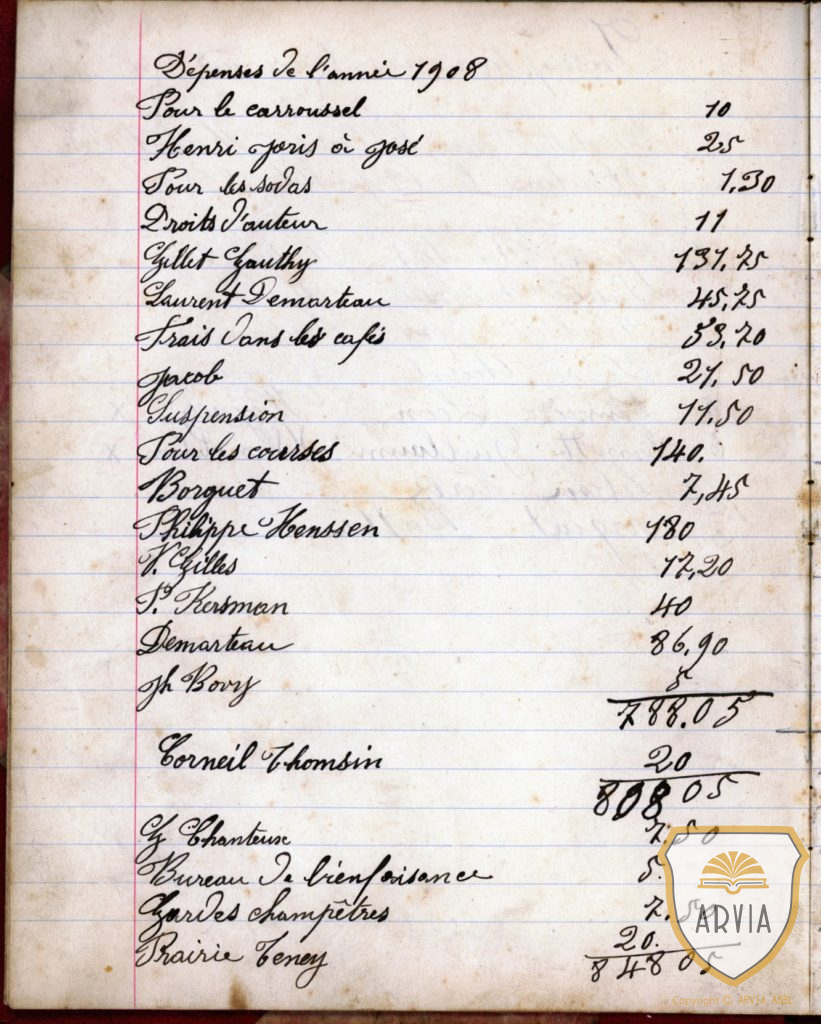 Dépenses de l'année 1908
Pour le carroussel 10
Henri Joris à José 25
Pour les sodas 1,30
Droits d'auteur 11
Gillet Gauthy 131,75
Laurent Demarteau 45,75
Frais dans les cafés 53,70
Jacob 21,50
Suspension 11.50
Pour les courses 140.
Borguet 7,45
Philippe Henssen 180
V. Gilles 17,20
Kersman 40
Demarteau 86,90
Jh Bovy 5
788.05
Corneil Thomsin 20
808 05
G Chanteux 7.50
Bureau de bienfaisance 5.
Gardes champêtres 7.50
Prairie Teney 20.
848 05
ARVIA
Copyright © ARVIA ASBL